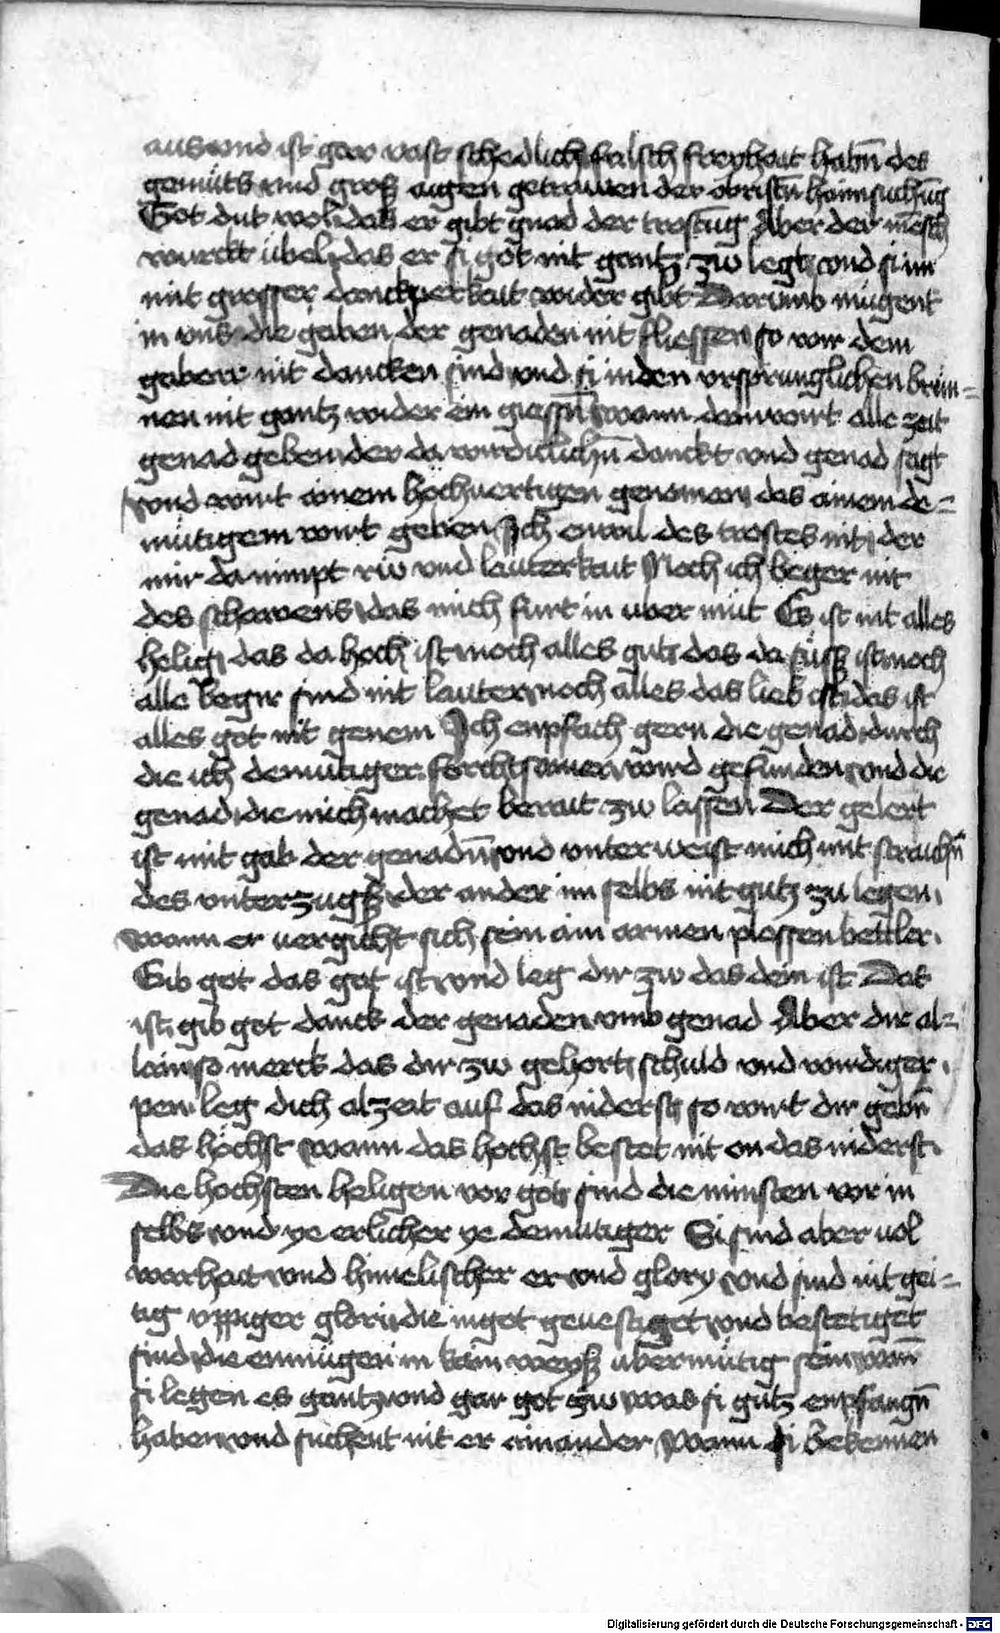 aus vnd ist gar vast schedlich falsch freyhait habn̄ des
gemüts vnd groß aigen getrawen der obristn̄ haimsuchūg
Got dut wol das er gibt gnad der trostūg Aber der mēsch
wurckt übel das er si got nit gantz zw legt vnd si im
mit grosser danckperkait wider gibt Darumb mügent
in vns die gaben der genaden nit fliessen so wir dem
gaberr nit dancken sind vnd si in den vrsprunglichen brün=
nen nit gantz wider ein giessn̄ Wann dem wirt alle zeit
genad geben der da wirdiclichn̄ danckt vnd genad sagt
vnd wirt ainem hochuertigen genomen das ainem de=
mütigem wirt geben Ich enwil des trostes nit der
mir da nimpt rw vnd lauterkait Noch ich beger nit
des schawens das mich furt in vber müt Es ist nit alles
heilig das da hoch ist noch alles gut das da süß ist noch
alle begir sind nit lauter noch alles das lieb ist das ist
alles got nit genem Ich enpfach gern die genad durch
die ich demütiger forchtsamer wird gefunden vnd die
genad die mich machet berait zw lassen Der gelert
ist mit gab der genadn̄ vnd vnterweist mich mit straichn̄
des vnterzugß der ander im selbs nit gutz zu legen
Wann er vergicht sich sein ain armen plossen bettler
Gib got das got ist vnd leg dir zw das dein ist Das
ist gib got danck der genaden vmb genad Aber dir al=
lain so merck das dir zw gehort schuld vnd wirdiger
pein leg dich alzeit auf das niderst so wirt dir gebn̄
das höchst Wann das hochst bestet nit on das niderst
Die hochsten heiligen vor got sind die minsten vor in
selbs vnd ye erlicher ye demütiger Si sind aber vol
warhait vnd himelischer er vnd glory vnd sind nit gei=
tig vppiger glori die in got geuestiget vnd bestetiget
sind die enmügen in kain weyß vbermütig sein wan̄
si legen es gantz vnd gar got zw was si gutz enpfangn̄
haben vnd suchent nit er ainander Wann si bekennen
Digitalisierung gefördert durch die Deutsche Forschungsgemeinschaft - DFG